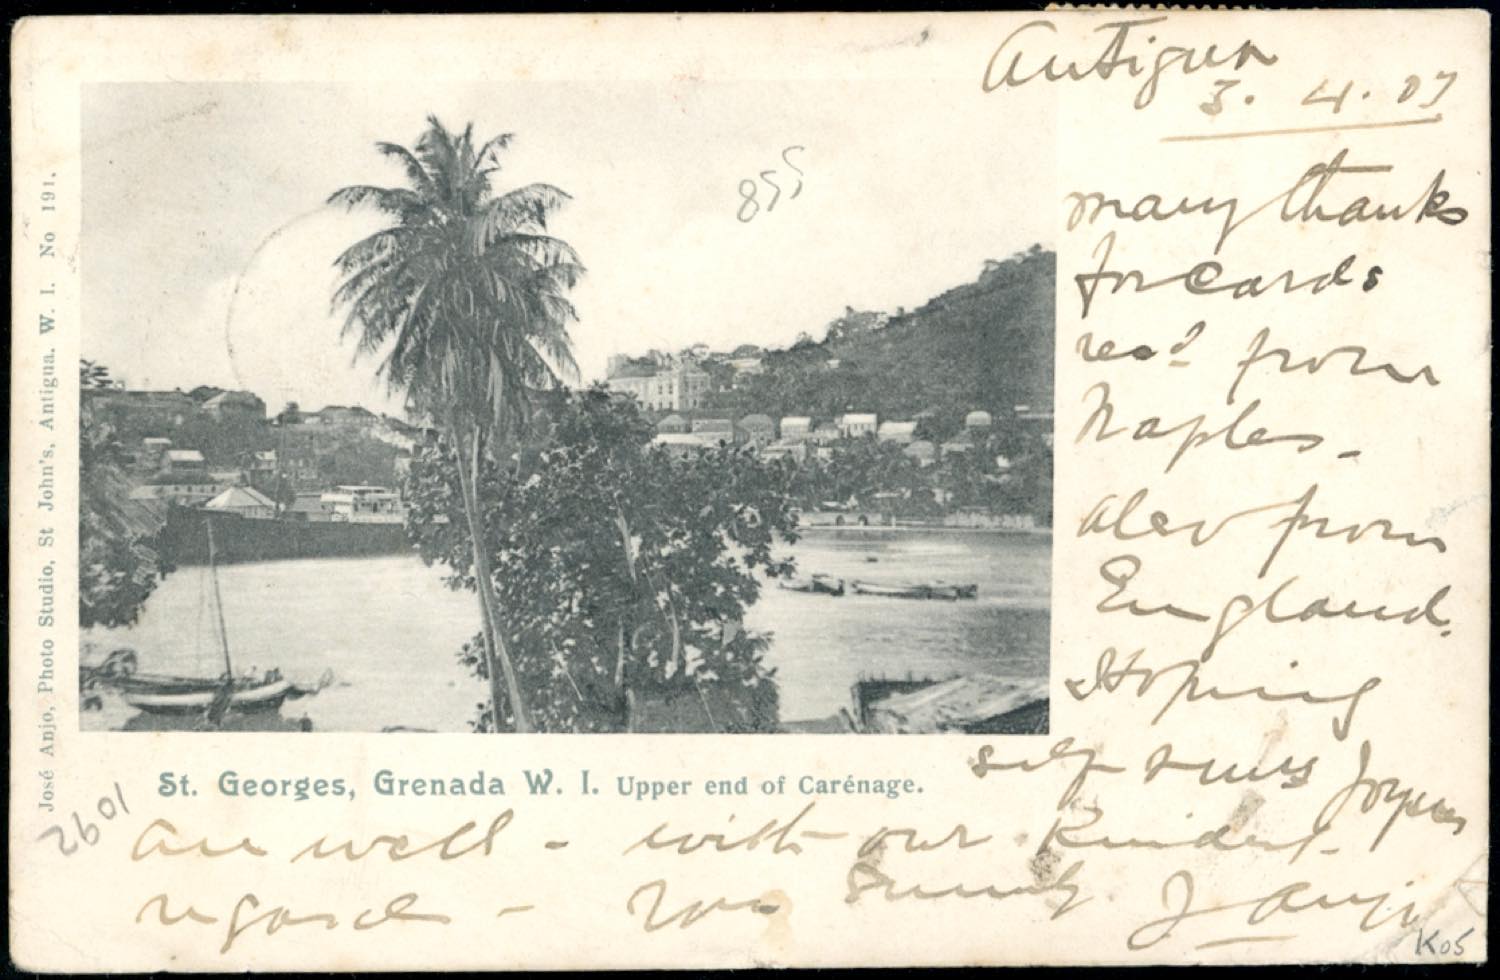 Antigua
3. 4. 07
many thanks
for cards
recd from
Naples -
also from
England.
Hoping
self & mrs
are well - with our kindest
regards - yrs sincerely J Anjo
855
St. Georges, Grenada W. I. Upper end of Carénage.
José Anjo, Photo Studio, St John's, Antigua. W. I. No 191.
2601
K05